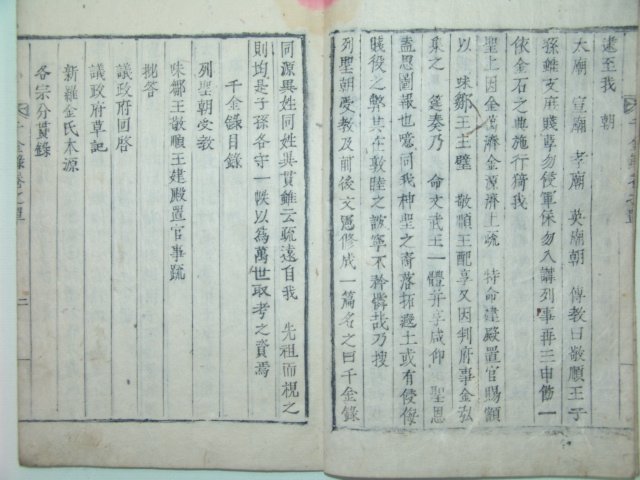 逮至我 朝
太廟 宣廟 孝廟 英廟朝 傳教曰敬順王子
孫雖支庶賤孽勿侵軍保勿入講列事再三申飭一
依金石之典施行猗我
聖上因金萬濟金源濟上疏 特命建殿置官賜額
以 味鄒王主壁 敬順王配享又因判府事金泓
集之 筵奏乃 命文武王一體幷享咸仰 聖恩
盍思圖報也噫同我神聖之裔落拓遐土或有侵侮
賤役之弊其在敦睦之誼寧不矜憐哉乃搜
列聖朝受教及前後文憲修成一篇名之曰千金錄
同源異姓同姓異貫雖云疏遠自我 先祖而視之
則均是子孫各守一帙以爲萬世取考之資焉
千金錄目錄
列聖朝受教
味鄒王敬順王建殿置官事疏
批答
議政府回啓
議政府草記
新羅金氏本源
各宗分貫錄
千金錄卷之單
二